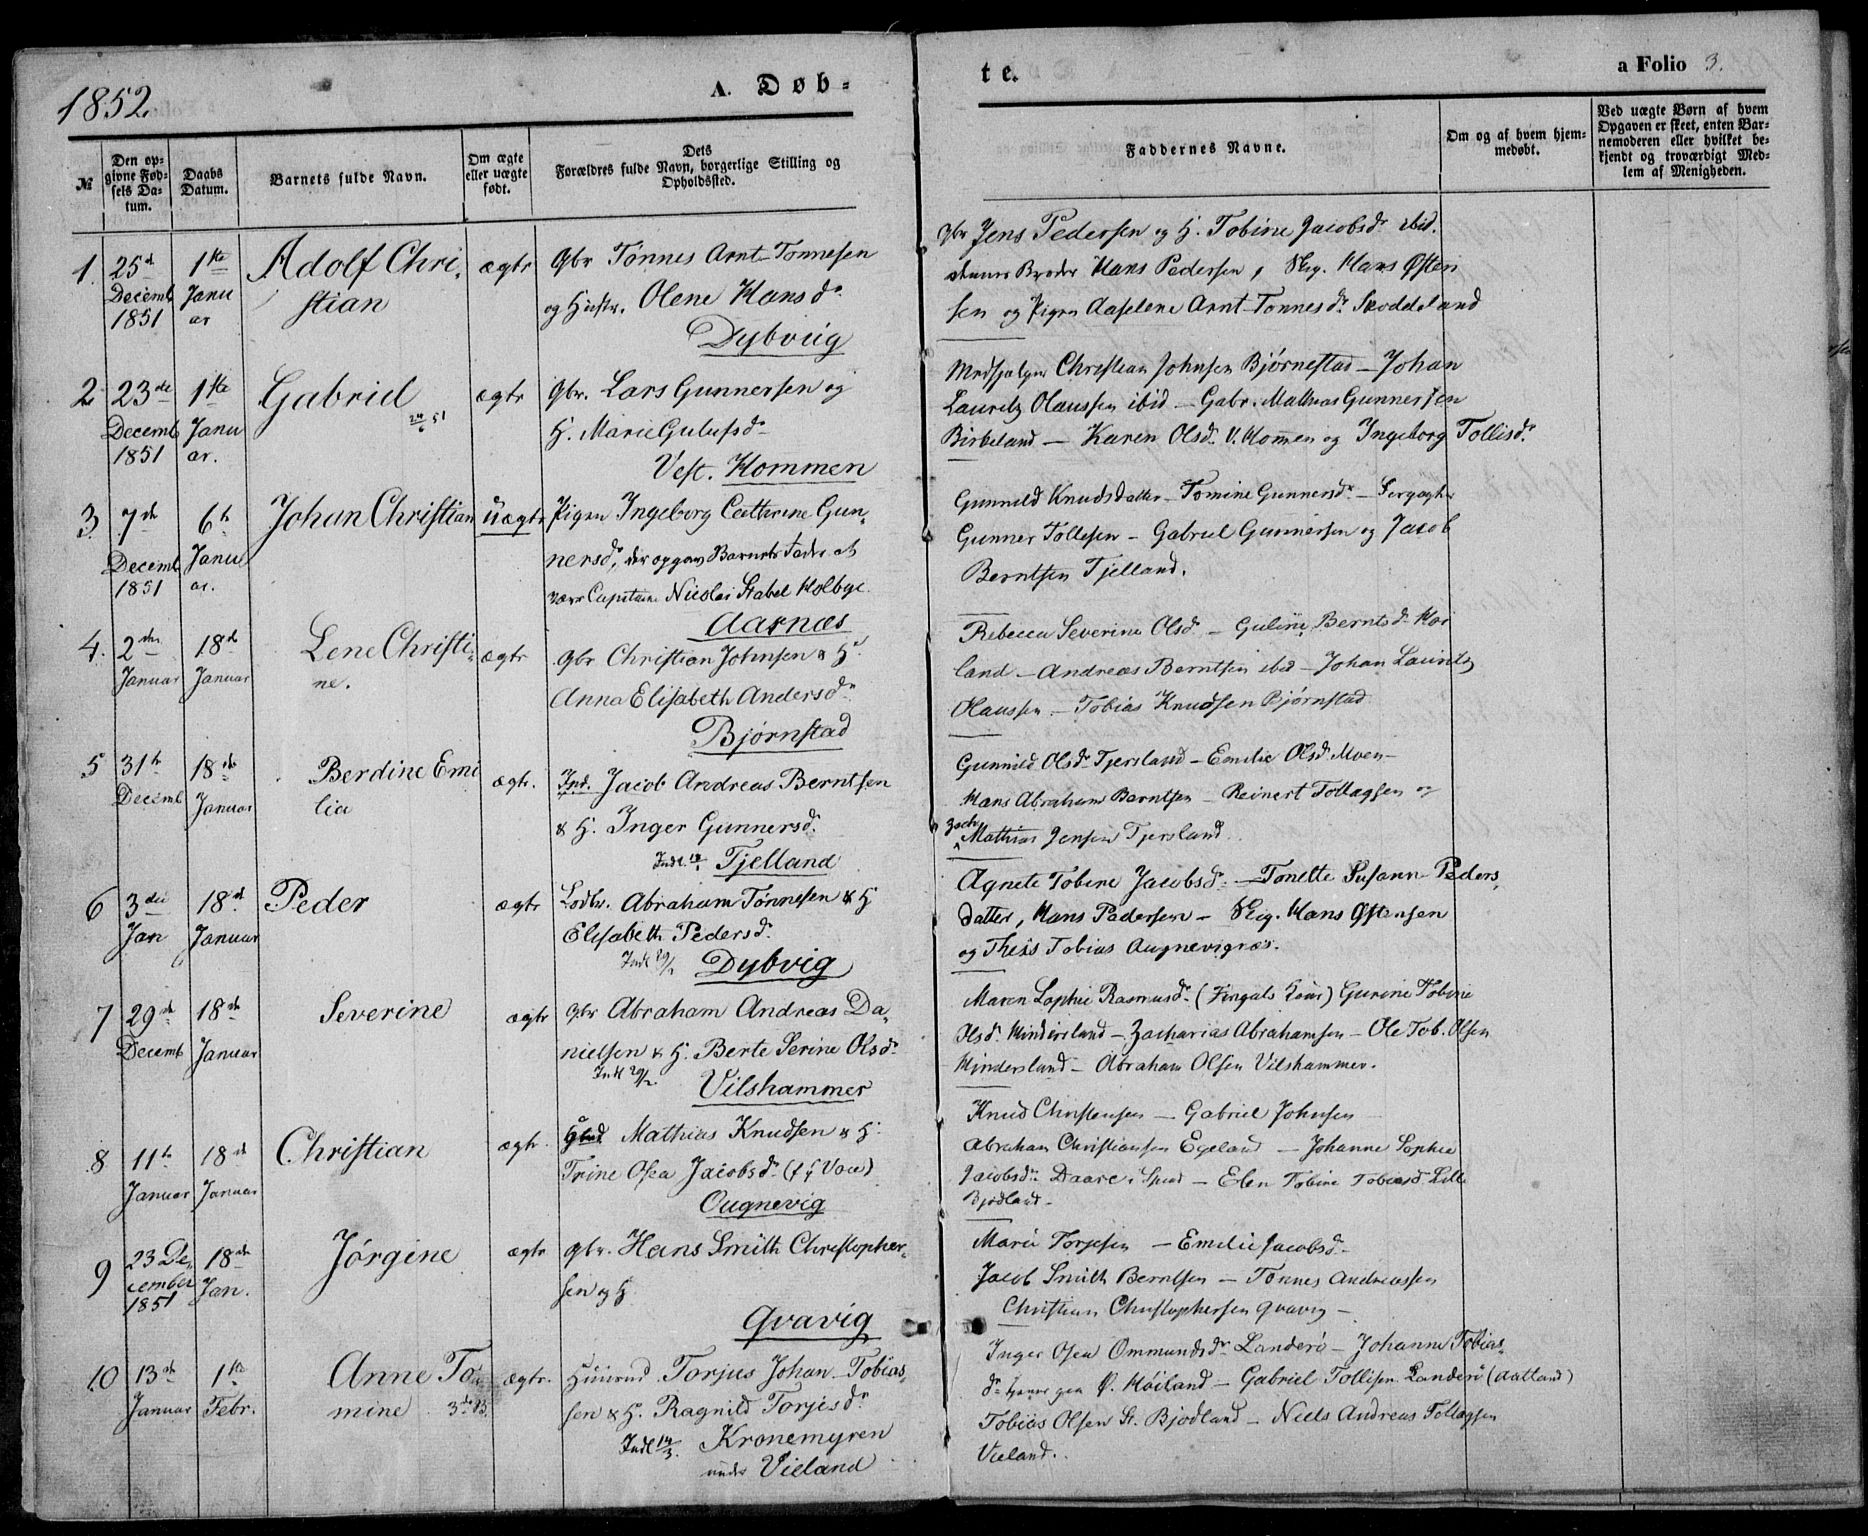 1852.
A. Døb-
te.
a Folio 3.
№
Den op-
givne Fød-
sels Da-
tum.
Daabs
Datum.
Barnets fulde Navn.
Om ægte
eller uægte
født.
Dets
Forældres fulde Navn, borgerlige Stilling og
Opholdssted.
Faddernes Navne.
Om og af hvem hjem-
medøbt.
Ved uægte Børn af hvem
Opgaven er skeet, enten Bar-
nemoderen eller hvilket be-
kjendt og troværdigt Med-
lem af Menigheden.
1. 25d Decemb 1851
1ste Janu ar
Adolf Chri-
stian
ægte
Gbr Tönnes Arnt Tonnesen
og Hustr. Olene Hansdr
Dybvig
Gbr Jens Pedersen og H. Tobine Jacobsdr ibid.
Broder Hans Pedersen, Hans Østen
sen og Pigen Aaselene Arnt Tonnesdr Skoddeland
2 23de Decemb 1851
1ste Janu ar.
Gabriel
ægte
Gbr. Lars Gunnersen og
H. Marie
Vest. Hommen
Christian Johnsen Bjørnestad - Johan
Lauritz Olaussen ibid - Gabr. Mathias Gunnersen
Birkeland - Karen Olsdr V. Hommen og Ingeborg Tollisdr
3. 7de Decemb 1851
6te Janu ar.
Johan Christian
uægte
Pigen Ingeborg Cathrine Gun-
nersdr, der opgav Barnets Fader at
være Capitaine Nicolai Stabel Holbye.
Aarnæs
Gunnild Knudsdatter - Tomine Gunnersdr -
Gunner Tollesen - Gabriel Gunnersen og Jacob
Berntsen Tjelland.
4. 2den Januar
18de Januar
Lene Christi-
ne.
ægte
Gbr Christian Johnsen & H
Anna Elisabeth Andersdr
Bjørnstad
Rebecca Severine Olsd - Guline Berntsdr Hør
land - Andreas Berntsen ibid - Johan Lauritz
Olaussen - Tobias Knudsen Bjørnstad
5 31te Decemb
18de Januar
Berdine Emi
lia
ægte.
Ind. Jacob Andreas Berntsen
& H. Inger Gunnersdr
Tjelland
Gunnild Olsdr Tjersland - Emilie Olsd Moen -
Hans Abraham Berntsen - Reinert Tollagsen og
Mathias Jensen Tjersland
6 3die Jan
18de Januar
Peder
ægte
Abraham Tönnesen & H
Elisabeth Pedersdr
Dybvig
Agnete Tobine Jacobsdr - Tonette Susann Peders
datter, Hans Pedersen - Hans Østensen
og Theis Tobias Augnevignæs.
7 29de Decemb
18de Januar
Severine
ægte
Gbr Abraham Andreas Da-
nielsen & H. Berte Serine Olsdr
Indl 29/2. Vilshammer
Maren Sophie Rasmusdr Gurine Tobine
Olsdr Hindersland - Zacharias Abrahamsen - Ole Tob. Olsen
Hindersland - Abraham Olsen Vilshammer.
8 11te Januar
18de Januar
Christian
ægte.
Mathias Knudsen & H.
Trine Osea Jacobsdr
Ougnevig
Knud Christensen - Gabriel Johnsen
Abraham Christiansen Egeland - Johanne Sophie
Jacobsdr Daare i Spind - Elen Tobine Tobiasd Lille
Bjødland -
9 23 De-
cember 1851
18de Jan.
Jörgine
ægte
Gbr. Hans Smith Christopher-
sen og H
Qvavig
Marie Torjesen - Emilie Jacobsdr
Jacob Smith Berntsen - Tönnes Andreassen
Christian Christophersen Qvavig -
10 13de Januar
1ste Febr.
Anne To-
mine
ægte.
Torjus Johan Tobias-
sen & H. Ragnild Torjesdr
Indl 14/3. Kronemyren
under Vieland
Inger Osea Ommundsdr Landerö - Johanne Tobias
Ø. Höiland - Gabriel Tollisen Landerö (Aatland)
Tobias Olsen St. Bjødland - Niels Andreas Tollagsen
Vieland.